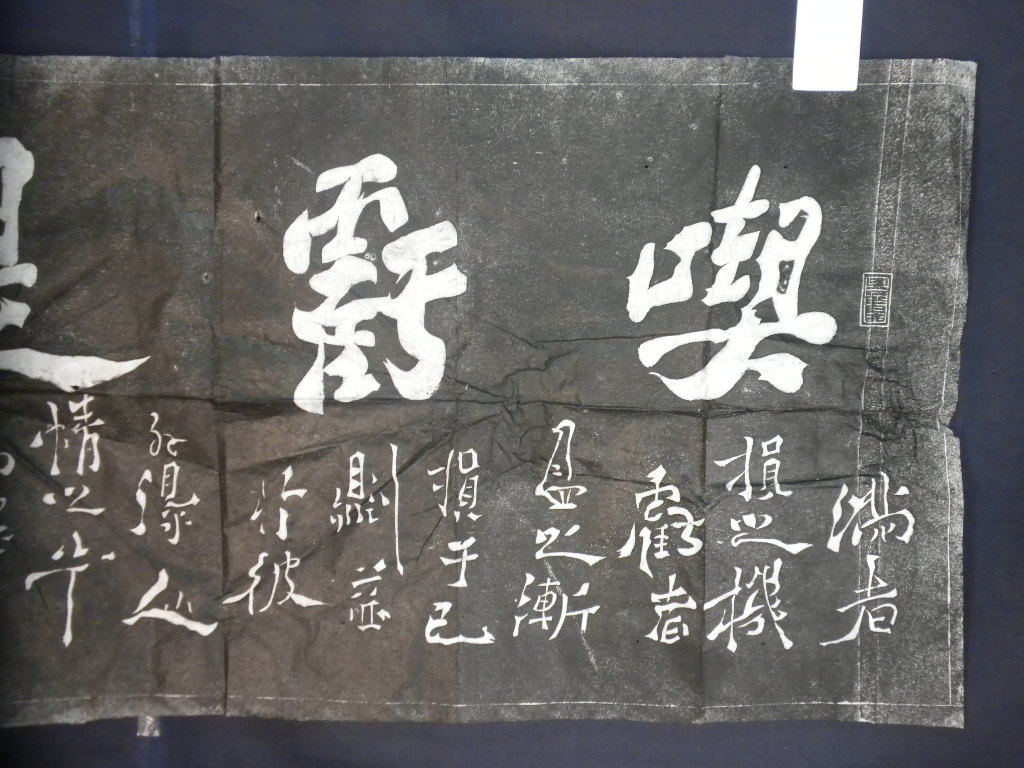 喫虧是
滿者
損之機
虧者
盈之漸
損于己
則益
于彼
外得人
情之平